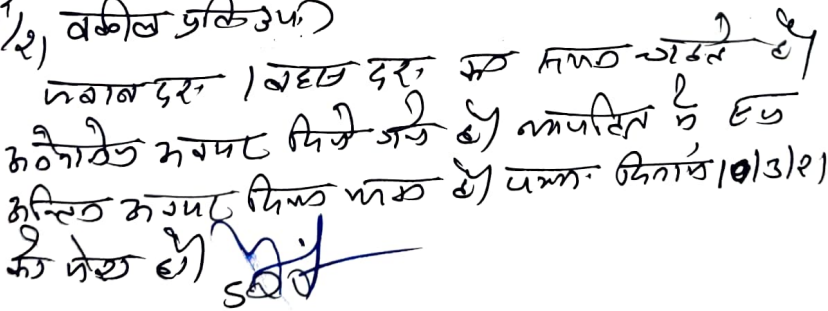 1/21 वकील प्रति उप.
जवाब दर. / बहस दर. का समय चाहते है।
अनेकानेक अवसर दिये गये है। न्यायहित मे एक
अन्तिम अवसर दिया जाता है। पत्रा. दिनांक 10/3/21
को पेश हो।
SDO